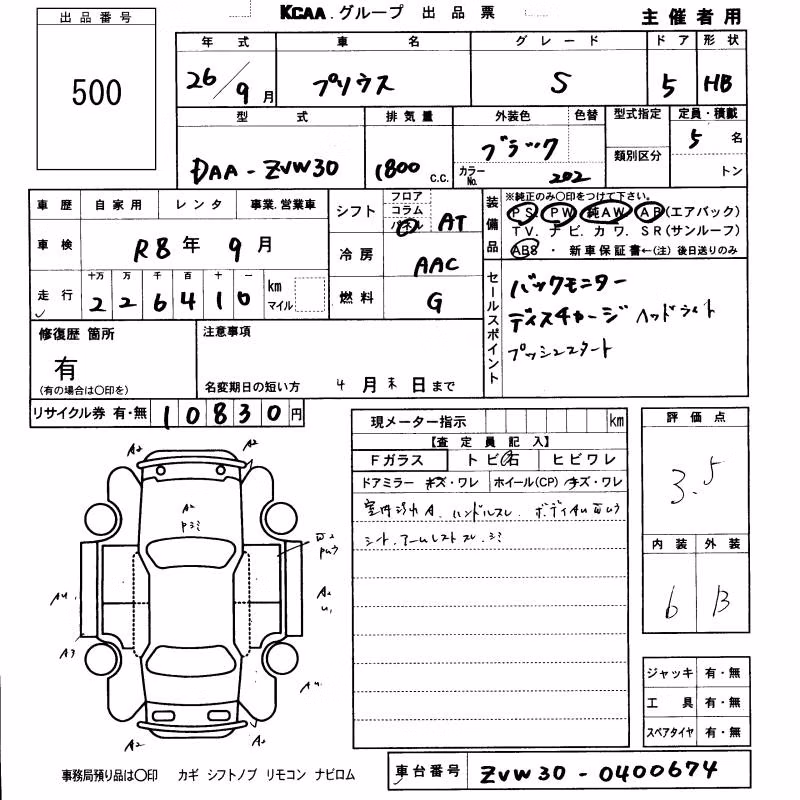 出品番号
500
KCAA.グループ 出品票
主催者用
年式 車名 グレード ドア 形状
26/9月 プリウス S 5 HB
型式 排気量 外装色 色替 型式指定 定員・積載
DAA-ZVW30 1800 c.c. ブラック 類別区分 5名
カラーNo. 202 トン
車歴 自家用 レンタ 事業.営業車
シフト フロア コラム パネル AT
車検 R8年9月
冷房 AAC
走行 十万 万 千 百 十 一
226410 km マイル
燃料 G
装備品 ※純正のみ〇印をつけて下さい。
PS. PW. 純AW. AB(エアバック)
TV.ナビ.カワ.SR(サンルーフ)
ABS・新車保証書←(注)後日送りのみ
セールスポイント
バックモニター
ディスチャージ ヘッドライト
プッシュスタート
修復歴 箇所
有
(有の場合は〇印を)
注意事項
名変期日の短い方 4月末日まで
リサイクル券 有・無 10830円
現メーター指示 km
【査定員記入】
Fガラス トビ石 ヒビワレ
ドアミラー キズ・ワレ ホイール(CP) キズ・ワレ
ハンドルスレ.
シート.アームレストスレ.
評価点
3.5
内装 外装
6 B
A2 A2
A2
A2
U1
AU
A3
AU
A2 A2
ジャッキ 有・無
工具 有・無
スペアタイヤ 有・無
事務局預り品は〇印 カギ シフトノブ リモコン ナビロム
車台番号 ZVW30-0400674